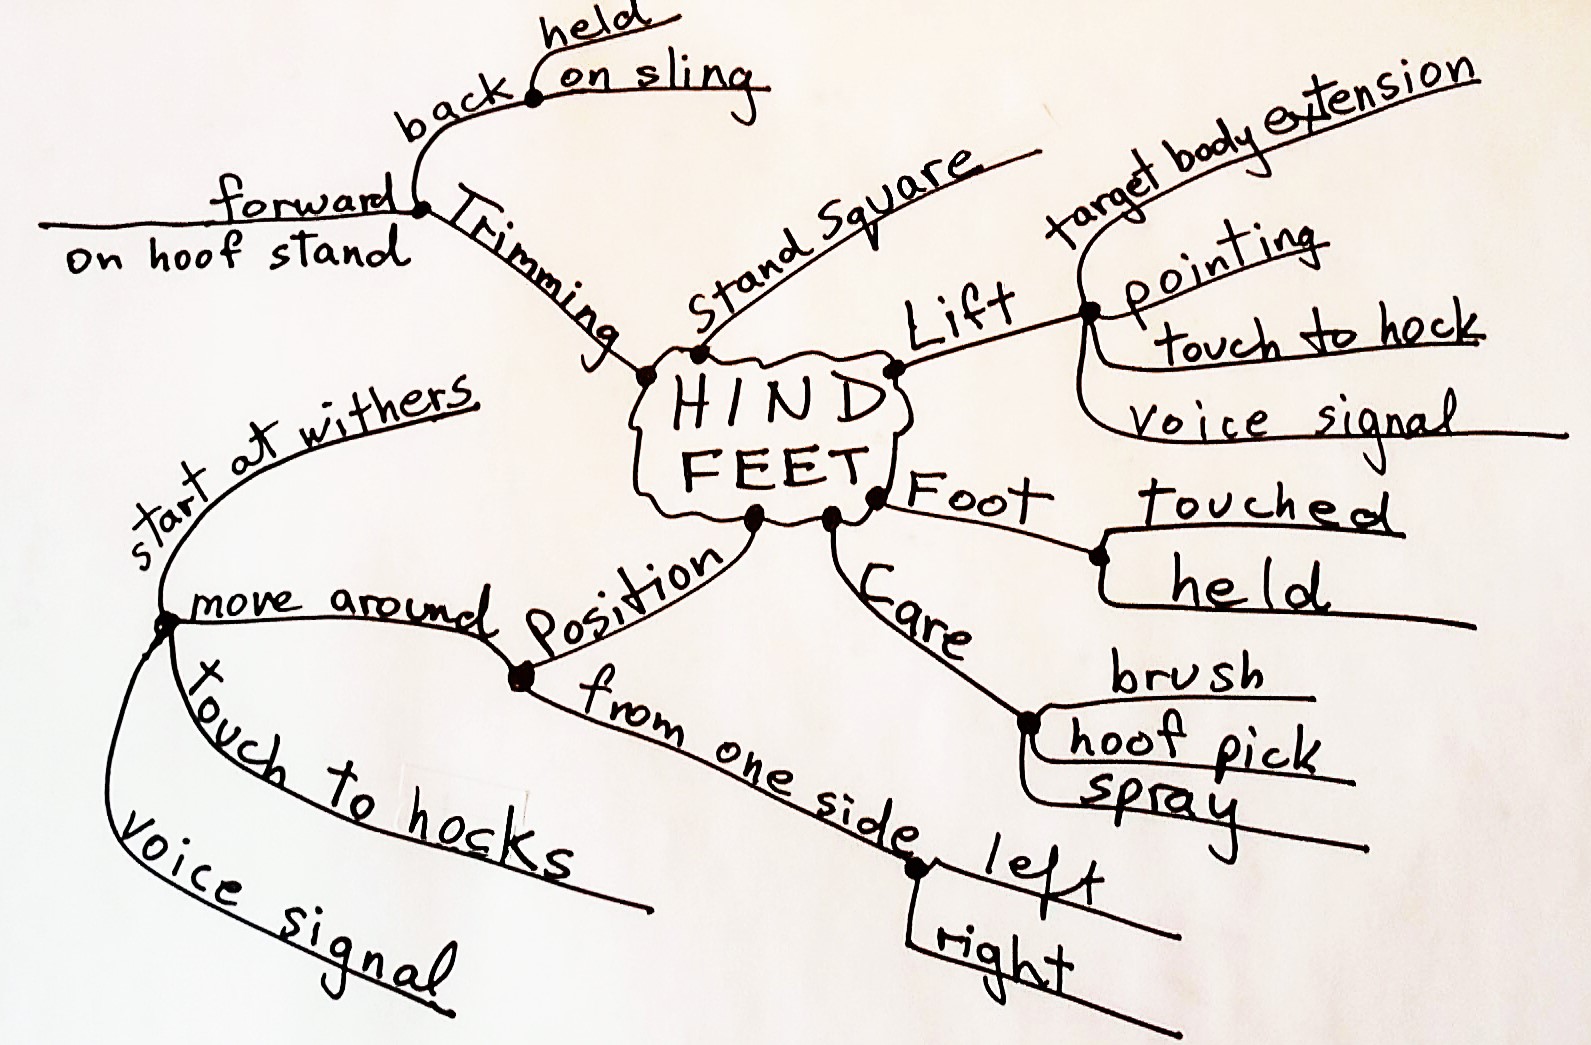 held
on sling
back
forward
on hoof stand
Trimming
Stand Square
Lift
target body extension
pointing
touch to hock
voice signal
HIND
FEET
Foot
touched
held
Care
brush
hoof pick
spray
Position
move around
start at withers
touch to hocks
voice signal
from one side
left
right